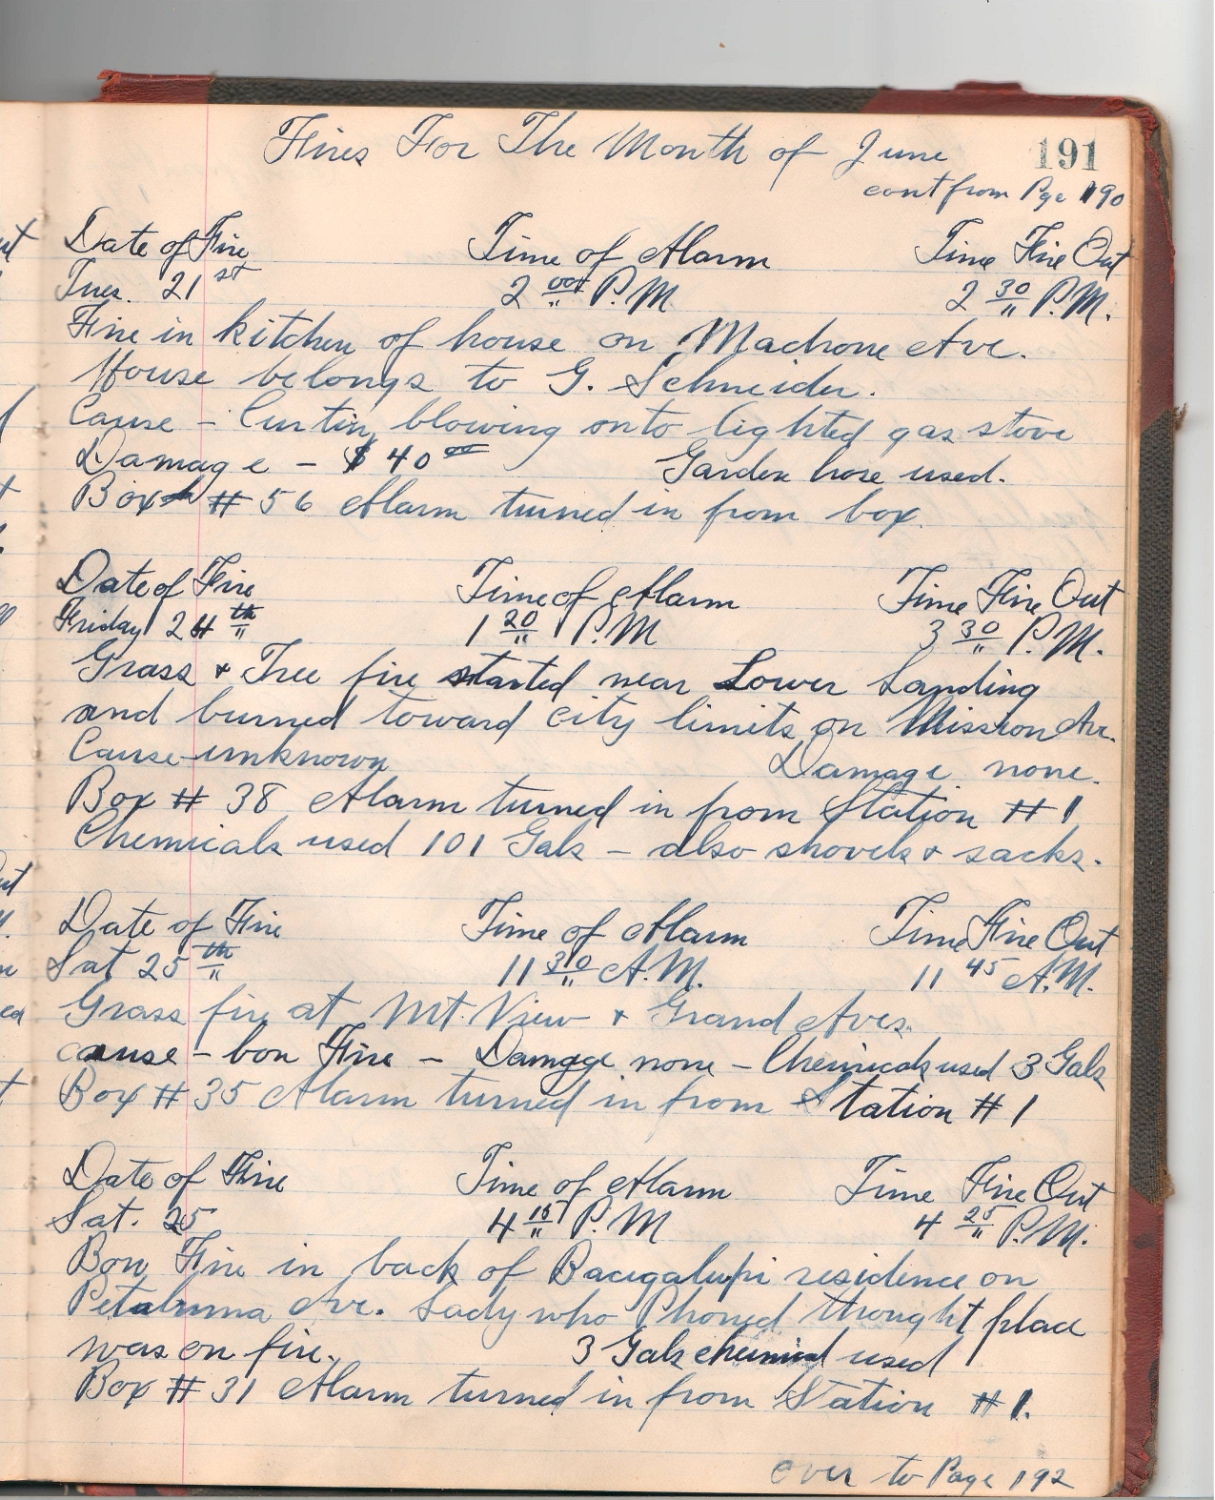 Fires For The Month of June 191
cont from Pge 190
Date of Fire Time of Alarm Time Fire Out
Tues. 21st 2 00 P.M 2 30 P.M.
Fire in kitchen of house on Madrone Ave.
House belongs to G. Schneider.
Cause - Curtin blowing onto lighted gas stove
Damage - $40 00 Garden hose used.
Box # 56 Alarm turned in from box.
Date of Fire Time of Alarm Time Fire Out
Friday 24th 1 20 P.M 3 30 P.M.
Grass & Tree fire started near Lower Landing
and burned toward city limits on Mission Ave.
Cause-unknown Damage none.
Box # 38 Alarm turned in from Station #1
Chemicals used 101 Gals - also shovels & sacks.
Date of Fire Time of Alarm Time Fire Out
Sat 25th 11 30 A.M. 11 45 A.M.
Grass fire at Mt. View & Grand Aves.
cause - bon Fire - Damage none - Chemicals used 3 Gals
Box # 35 Alarm turned in from Station #1
Date of Fire Time of Alarm Time Fire Out
Sat. 25 4 15 P.M 4 25 P.M.
Bon Fire in back of Bacigalupi residence on
Petaluma Ave. Lady who Phoned thought place
was on fire. 3 Gals chemical used
Box # 31 Alarm turned in from Station #1.
over to Page 192